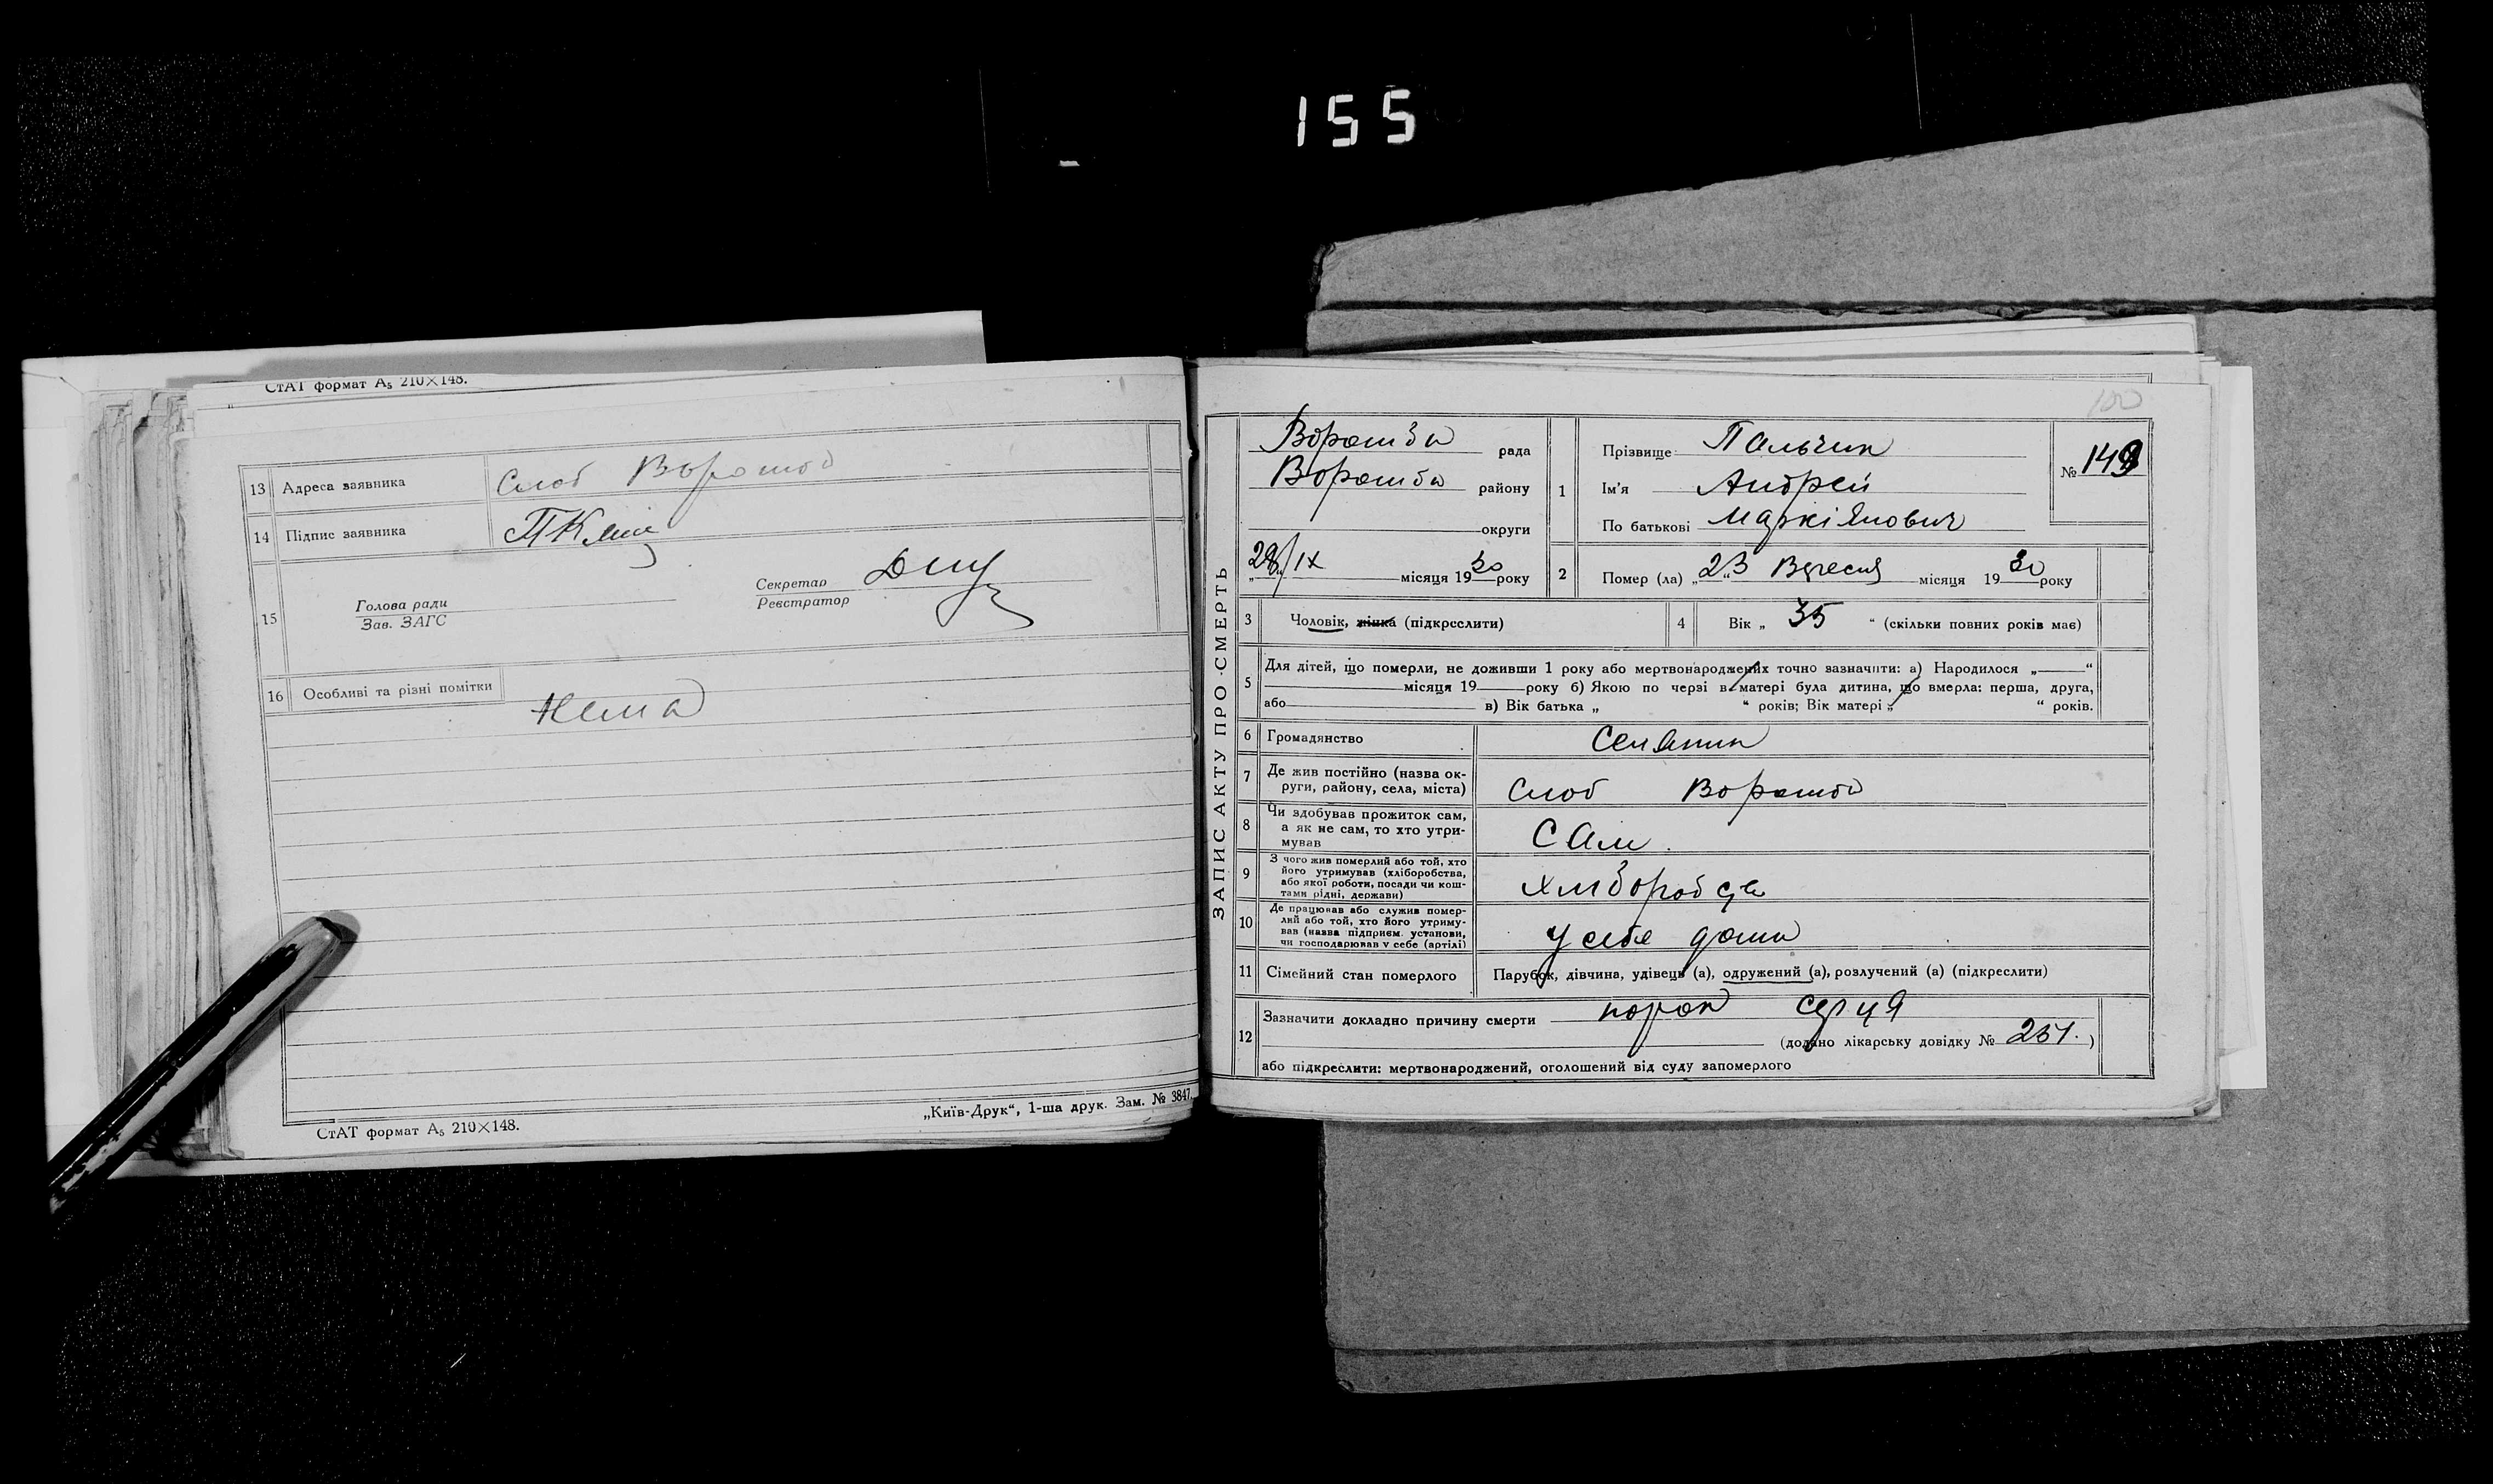 155
СтАТ формат А₅ 210×148.
13 Адреса заявника Слоб Ворожба
14 Підпис заявника
15 Голова ради
Зав. ЗАГС
Секретар
Реєстратор
16 Особливі та різні помітки
Нема
„Київ-Друк“, 1-ша друк. Зам. № 3847.
СтАТ формат А₅ 210×148.
100
ЗАПИС АКТУ ПРО СМЕРТЬ
Ворожба рада
Ворожба району
округи
28/IX місяця 1930 року
1 Прізвище Пальчик
Ім'я Андрей
По батькові Маркіянович
№ 149
2 Помер (ла) „23“ Вересня місяця 1930 року
3 Чоловік, жінка (підкреслити)
4 Вік „ 35 “ (скільки повних років має)
5 Для дітей, що померли, не доживши 1 року або мертвонароджених точно зазначити: а) Народилося „ “
місяця 19 року б) Якою по черзі в матері була дитина, що вмерла: перша, друга,
або в) Вік батька „ “ років; Вік матері „ “ років.
6 Громадянство Селянин
7 Де жив постійно (назва ок-
руги, району, села, міста) Слоб Ворожба
8 Чи здобував прожиток сам,
а як не сам, то хто утри-
мував Сам.
9 З чого жив померлий або той, хто
його утримував (хліборобства,
або якої роботи, посади чи кош-
тами рідні, держави) хліборобства
10 Де працював або служив помер-
лий або той, хто його утриму-
вав (назва підприєм. установи,
чи господарював у себе (артілі) У себе дома
11 Сімейний стан померлого Парубок, дівчина, удівець (а), одружений (а), розлучений (а) (підкреслити)
12 Зазначити докладно причину смерти порок серця
(додано лікарську довідку № 251.)
або підкреслити: мертвонароджений, оголошений від суду запомерлого